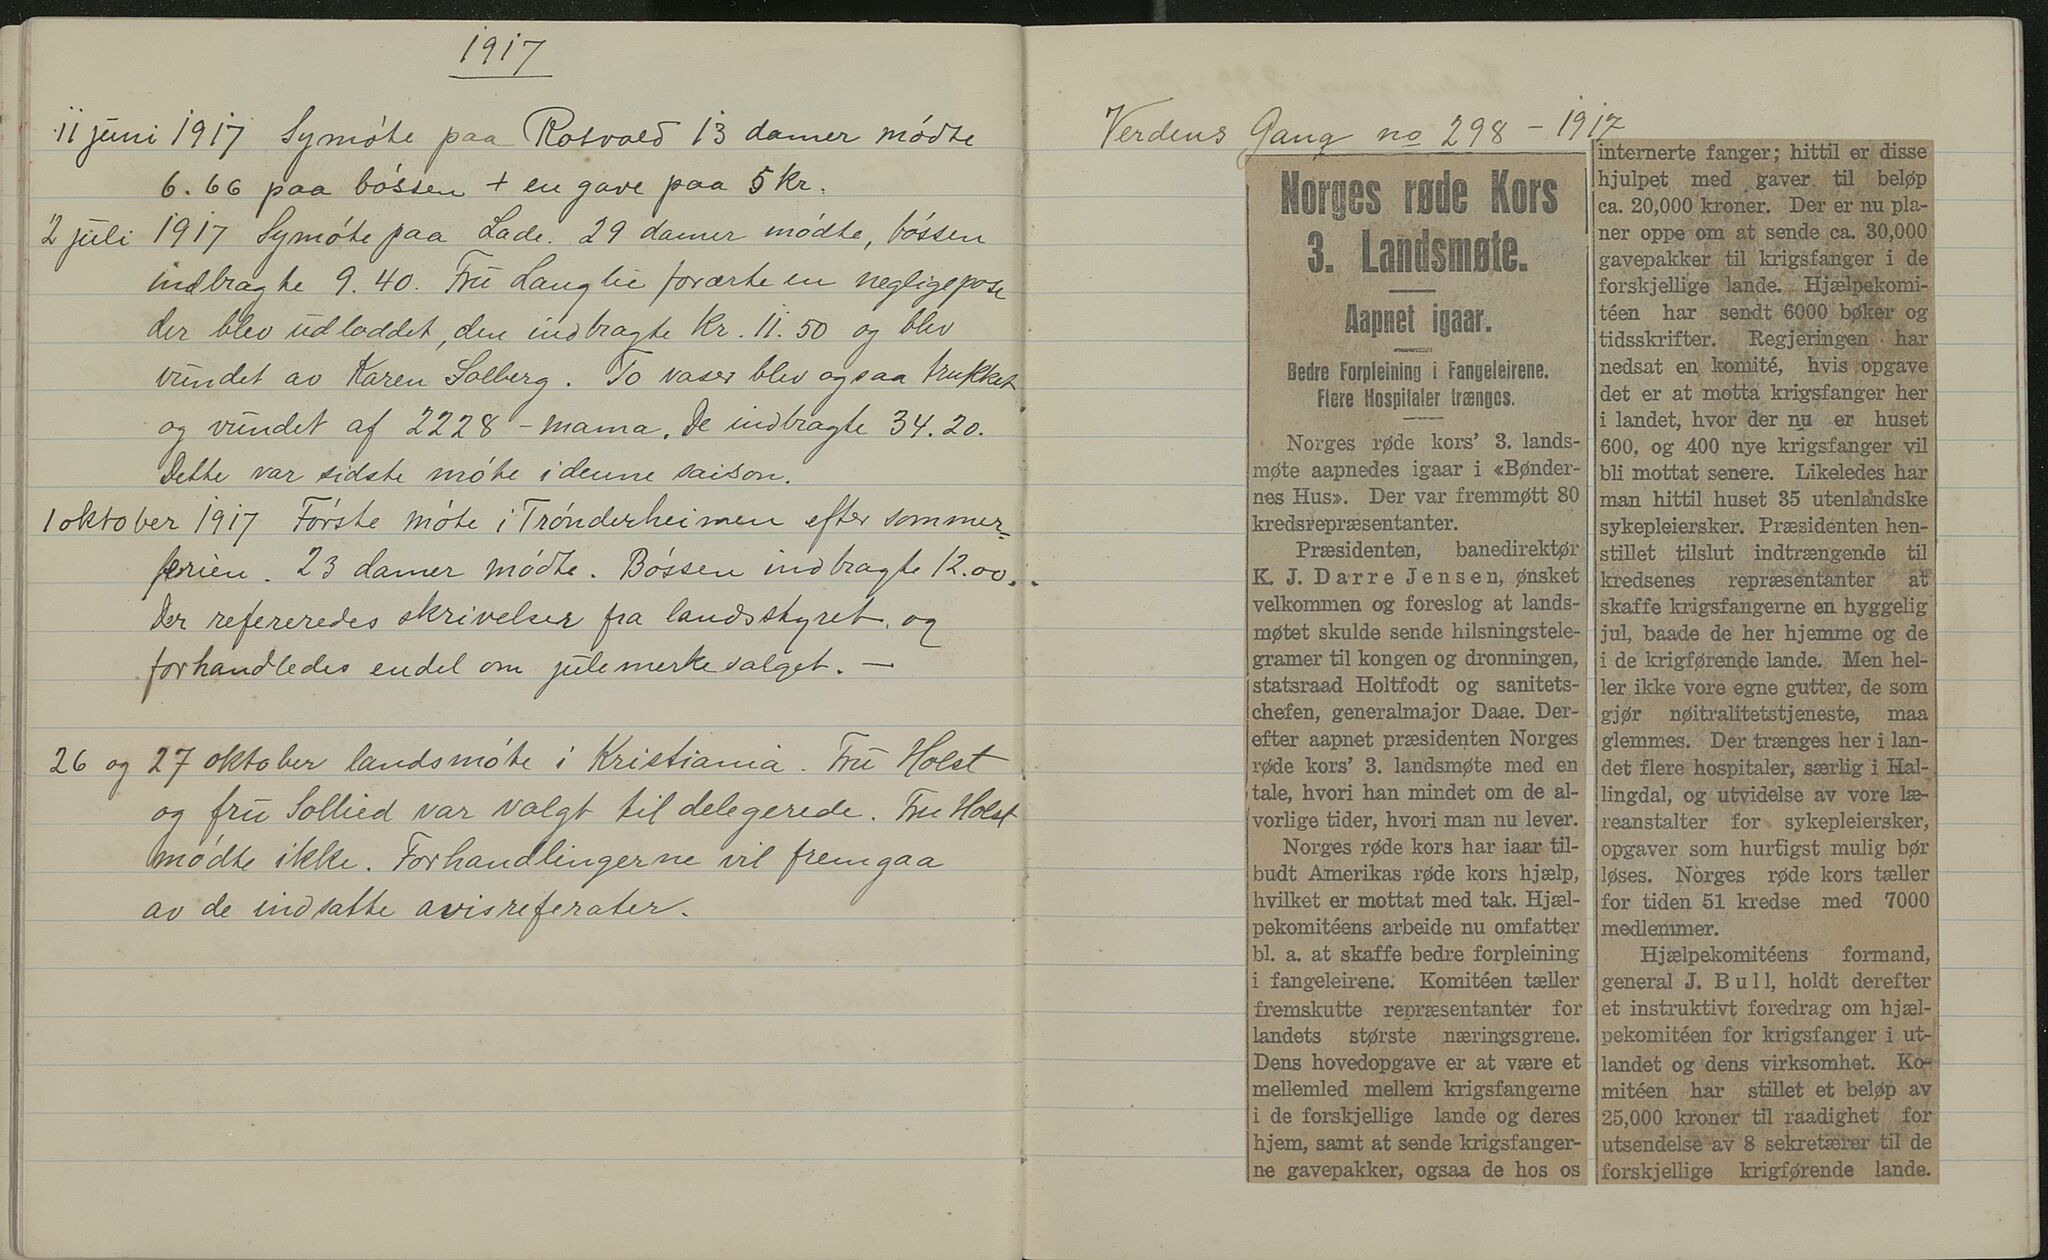 1917
11 juni 1917 Symöte paa Rotvold 13 damer mödte
6.66 paa bössen + en gave paa 5 kr.
2 juli 1917 Symöte paa Lade. 29 damer mödte, bössen
indbragte 9.40. Fru Langlie forærte en negligepose
der blev udloddet, den indbragte Kr. 11.50 og blev
vundet av Karen Solberg. To vaser blev ogsaa trukket
og vundet af 2228 – mama. De indbragte 34.20.
Dette var sidste möte i denne saison.
1 oktober 1917 Förste möte i Trönderheimen efter sommer=
ferien. 23 damer mödte. Bössen indbragte 12.00.
Der refereredes skrivelser fra landsstyret. og
forhandledes endel om julemerkesalget. —
26 og 27 oktober landsmöte i Kristiania. Fru Holst
og fru Sollied var valgt til delegerede. Fru Holst
mödte ikke. Forhandlingerne vil fremgaa
av de indsatte avisreferater.
Verdens Gang no 298 – 1917
Norges røde Kors
3. Landsmøte.
Aapnet igaar.
Bedre Forpleining i Fangeleirene.
Flere Hospitaler trænges.
Norges røde kors' 3. lands-
møte aapnedes igaar i «Bønder-
nes Hus». Der var fremmøtt 80
kredsrepræsentanter.
Præsidenten, banedirektør
K. J. Darre Jensen, ønsket
velkommen og foreslog at lands-
møtet skulde sende hilsningstele-
gramer til kongen og dronningen,
statsraad Holtfodt og sanitets-
chefen, generalmajor Daae. Der-
efter aapnet præsidenten Norges
røde kors' 3. landsmøte med en
tale, hvori han mindet om de al-
vorlige tider, hvori man nu lever.
Norges røde kors har iaar til-
budt Amerikas røde kors hjælp,
hvilket er mottat med tak. Hjæl-
pekomitéens arbeide nu omfatter
bl. a. at skaffe bedre forpleining
i fangeleirene. Komitéen tæller
fremskutte repræsentanter for
landets største næringsgrene.
Dens hovedopgave er at være et
mellemled mellem krigsfangerne
i de forskjellige lande og deres
hjem, samt at sende krigsfanger-
ne gavepakker, ogsaa de hos os
internerte fanger; hittil er disse
hjulpet med gaver til beløp
ca. 20,000 kroner. Der er nu pla-
ner oppe om at sende ca. 30,000
gavepakker til krigsfanger i de
forskjellige lande. Hjælpekomi-
téen har sendt 6000 bøker og
tidsskrifter. Regjeringen har
nedsat en komité, hvis opgave
det er at motta krigsfanger her
i landet, hvor der nu er huset
600, og 400 nye krigsfanger vil
bli mottat senere. Likeledes har
man hittil huset 35 utenlandske
sykepleiersker. Præsidenten hen-
stillet tilslut indtrængende til
kredsenes repræsentanter at
skaffe krigsfangerne en hyggelig
jul, baade de her hjemme og de
i de krigførende lande. Men hel-
ler ikke vore egne gutter, de som
gjør nøitralitetstjeneste, maa
glemmes. Der trænges her i lan-
det flere hospitaler, særlig i Hal-
lingdal, og utvidelse av vore læ-
reanstalter for sykepleiersker,
opgaver som hurtigst mulig bør
løses. Norges røde kors tæller
for tiden 51 kredse med 7000
medlemmer.
Hjælpekomitéens formand,
general J. Bull, holdt derefter
et instruktivt foredrag om hjæl-
pekomitéen for krigsfanger i ut-
landet og dens virksomhet. Ko-
mitéen har stillet et beløp av
25,000 kroner til raadighet for
utsendelse av 8 sekretærer til de
forskjellige krigførende lande.